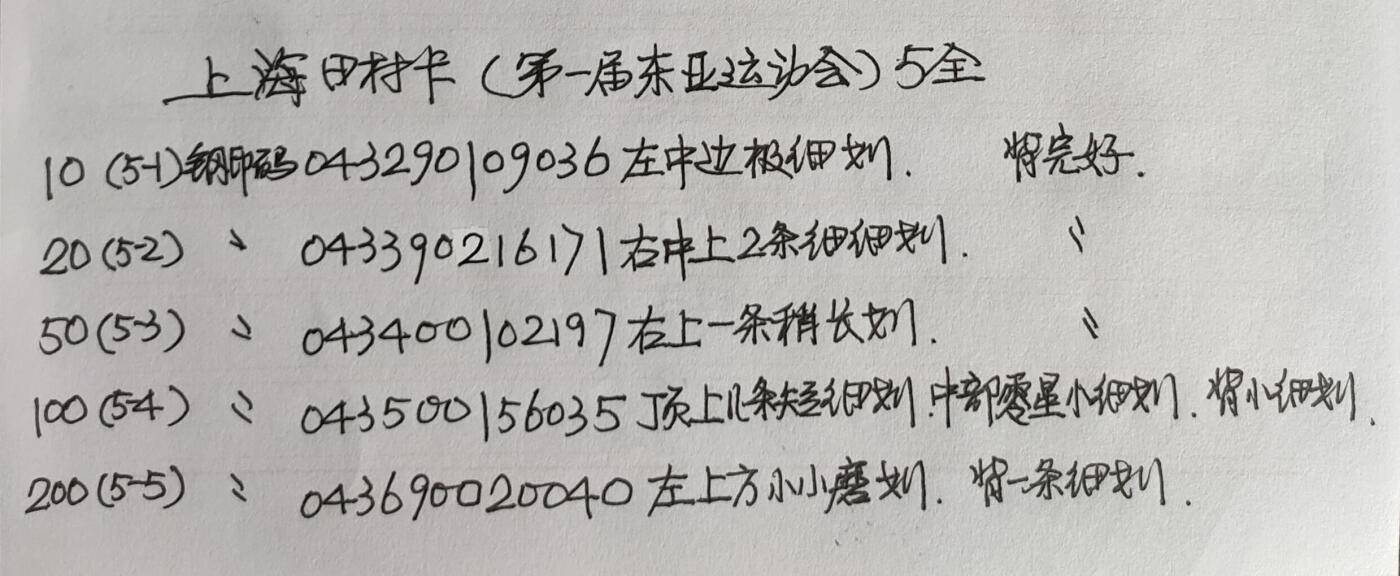 上海田村卡（第一届东亚运动会）5全
10（5-1）钢印码043290109036左中边极细划. 背完好.
20（5-2） 〃 043390216171右中上2条细细划. 〃
50（5-3） 〃 043400102197右上一条稍长划. 〃
100（5-4） 〃 043500156035顶上几条短细划.中部零星小细划.背小细划.
200（5-5） 〃 043690020040左上方小小磨划.背一条细划.